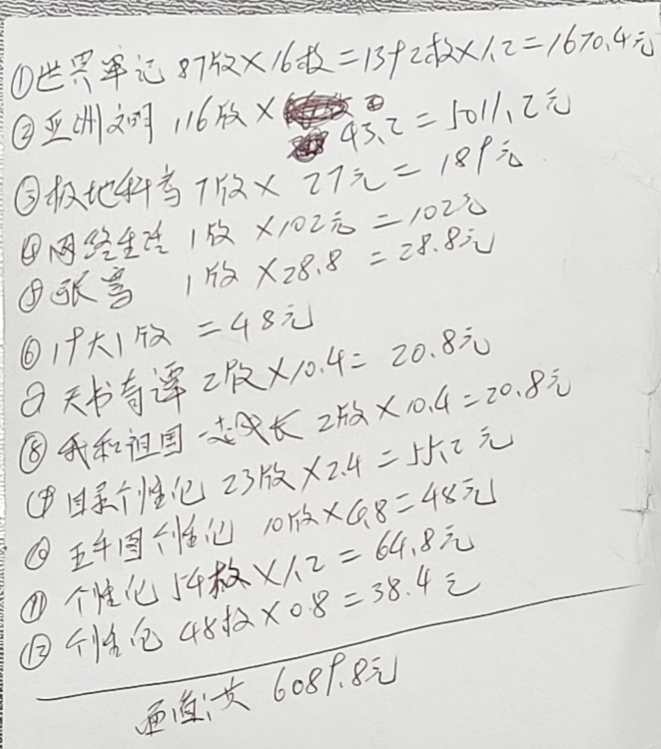 ①世界军记 87版×16枚=1392枚×1.2=1670.4元
②亚洲文明 116版× 43.2=5011.2元
③极地科考 7版× 27元=189元
④网络生活 1版×102元=102元
⑤张骞 1版×28.8=28.8元
⑥19大1版=48元
⑦天书奇谭2版×10.4=20.8元
⑧我和祖国一起成长 2版×10.4=20.8元
⑨目录个性化 23版×2.4=55.2元
⑩五牛图个性化 10版×4.8=48元
⑪个性化54枚×1.2=64.8元
⑫个性化 48枚×0.8=38.4元
面值共 6089.8元